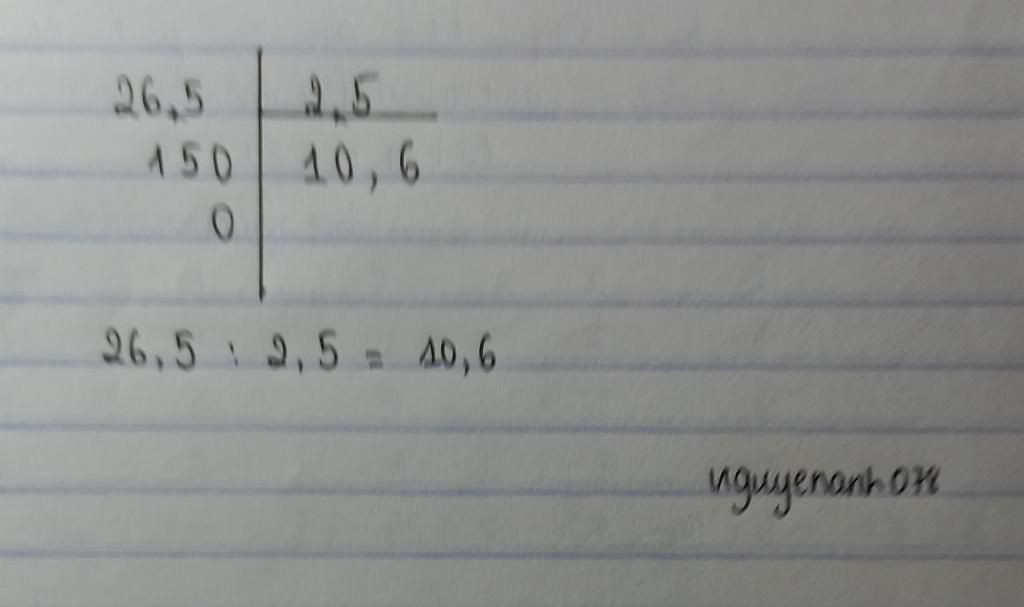 26,5 2,5
150 10,6
0
26,5 : 2,5 = 10,6
nguyenanh078